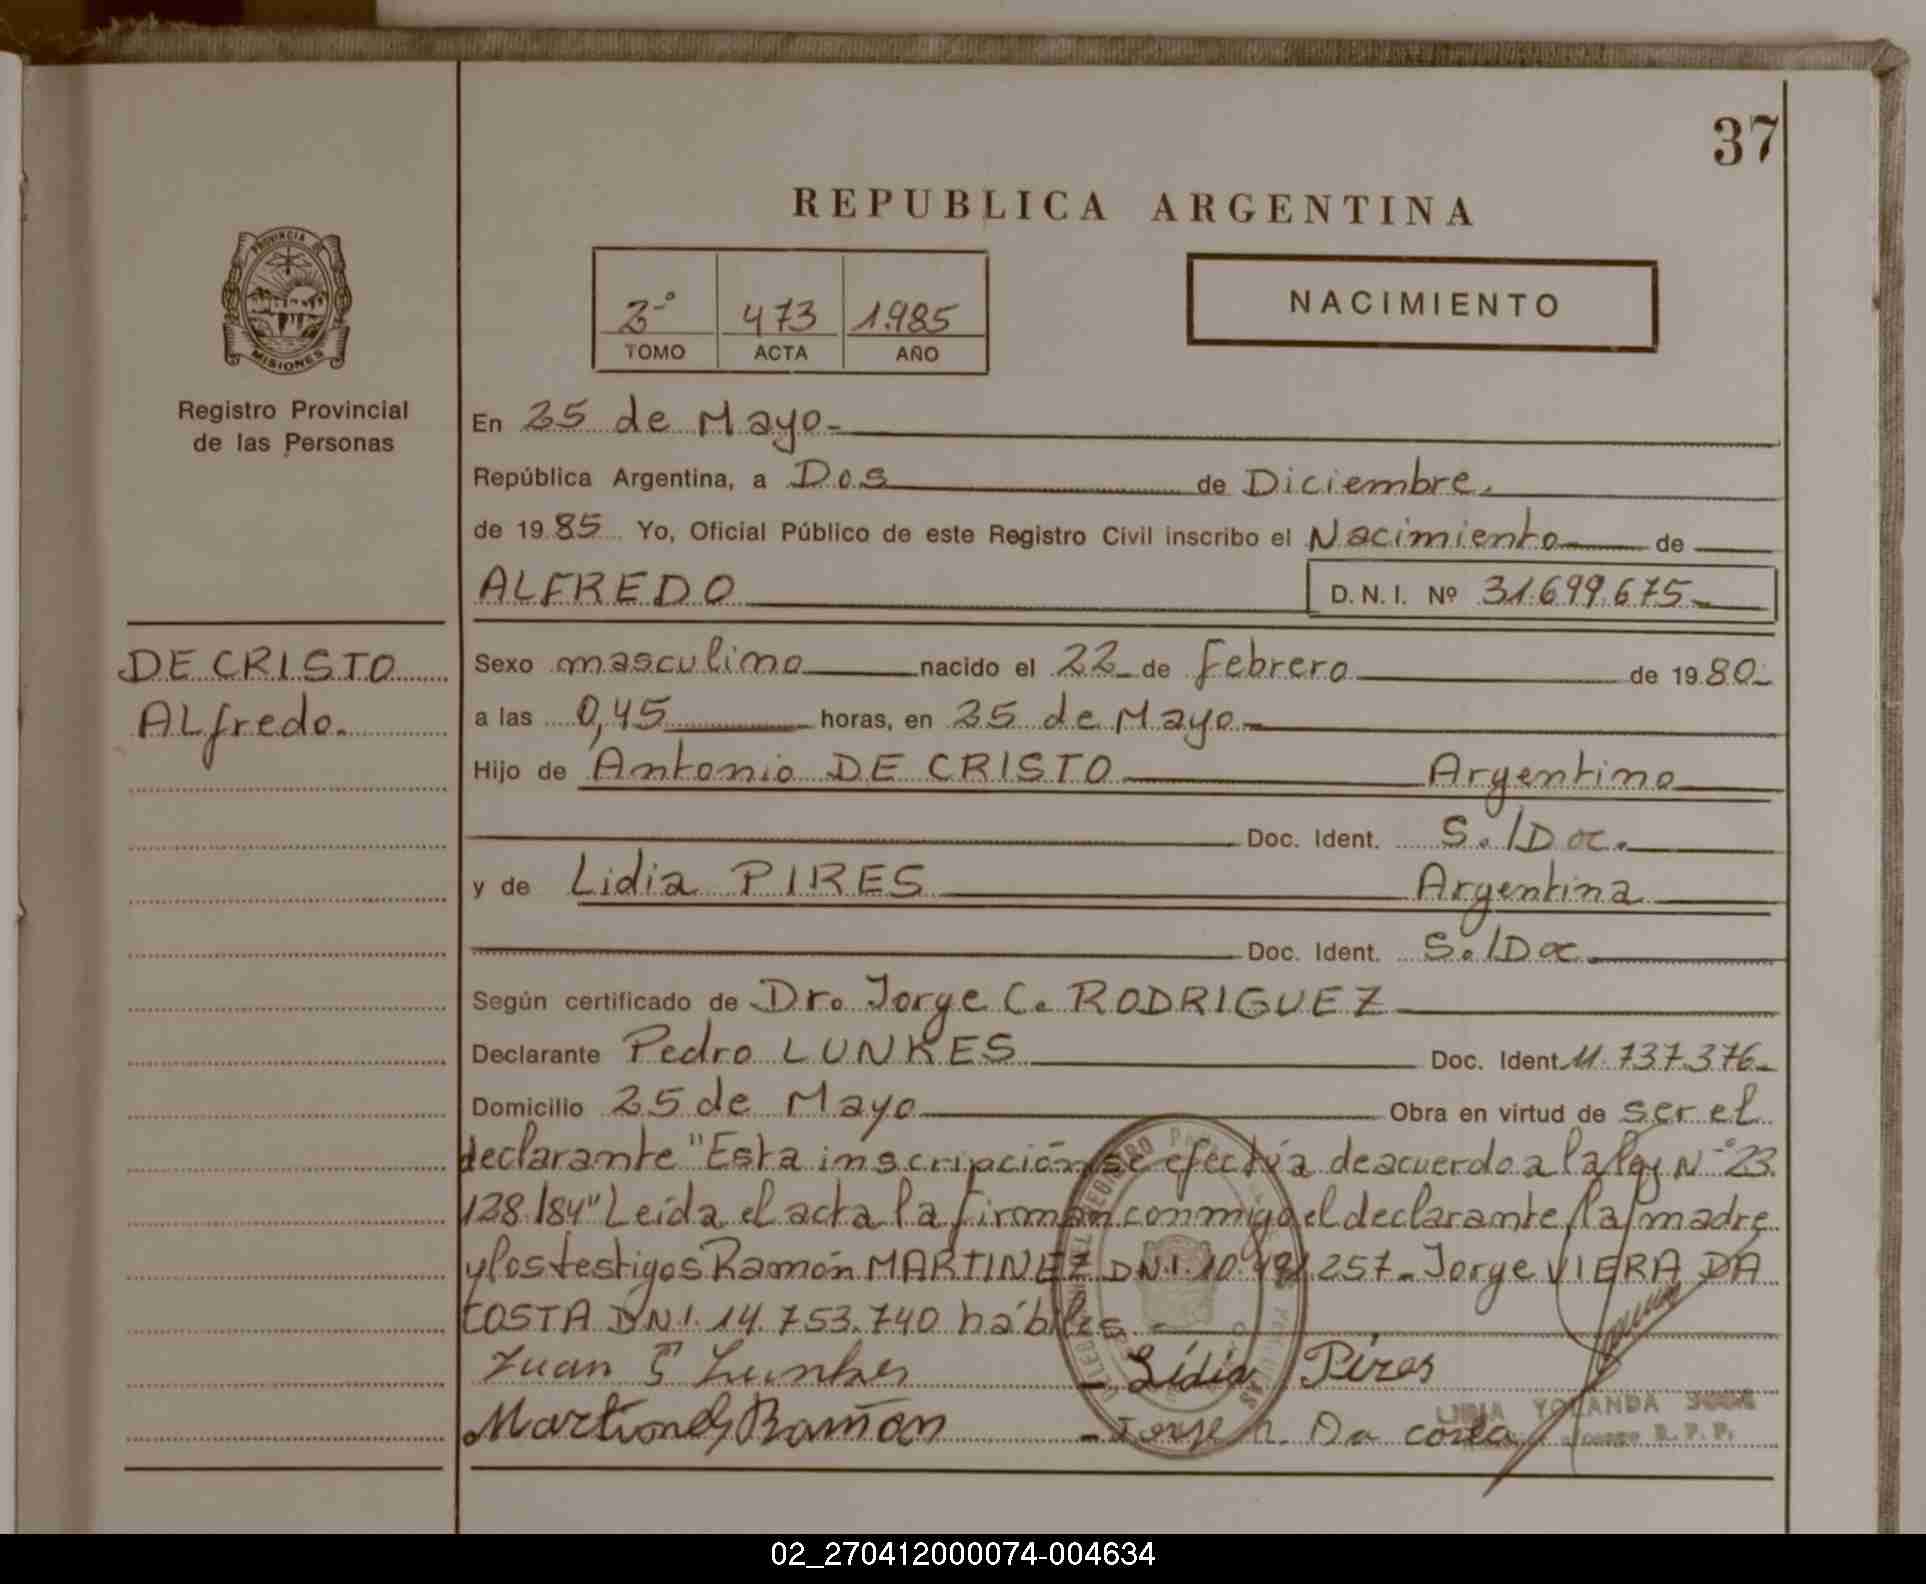 37
REPUBLICA ARGENTINA
PROVINCIA DE
MISIONES
Registro Provincial
de las Personas
2º 473 1.985
TOMO ACTA AÑO
NACIMIENTO
En 25 de Mayo-
República Argentina, a Dos de Diciembre.
de 1985 Yo, Oficial Público de este Registro Civil inscribo el Nacimiento de
ALFREDO D.N.I. Nº 31.699.675-
DE CRISTO
ALfredo.
Sexo masculino nacido el 22 de febrero de 1980-
a las 0,45 horas, en 25 de Mayo-
Hijo de Antonio DE CRISTO Argentino
Doc. Ident. S./Doc.
y de Lidia PIRES Argentina
Doc. Ident. S./Doc.
Según certificado de Dro. Jorge C. RODRIGUEZ
Declarante Pedro LUNKES Doc. Ident. 11.737.376-
Domicilio 25 de Mayo Obra en virtud de ser el
declarante "Esta inscripción se efectúa deacuerdo a la ley Nº 23.
128/84" Leída el acta la firman conmigo el declarante, la madre
y los testigos Ramón MARTINEZ DN.I. 10.491.257- Jorge VIERA DA
COSTA DN.I. 14.753.740 hábiles.-
Juan Lunkes - Lidia Pires
Martines Ramon - Jorge Da costa
YOLANDA
R.P.P.
02_270412000074-004634